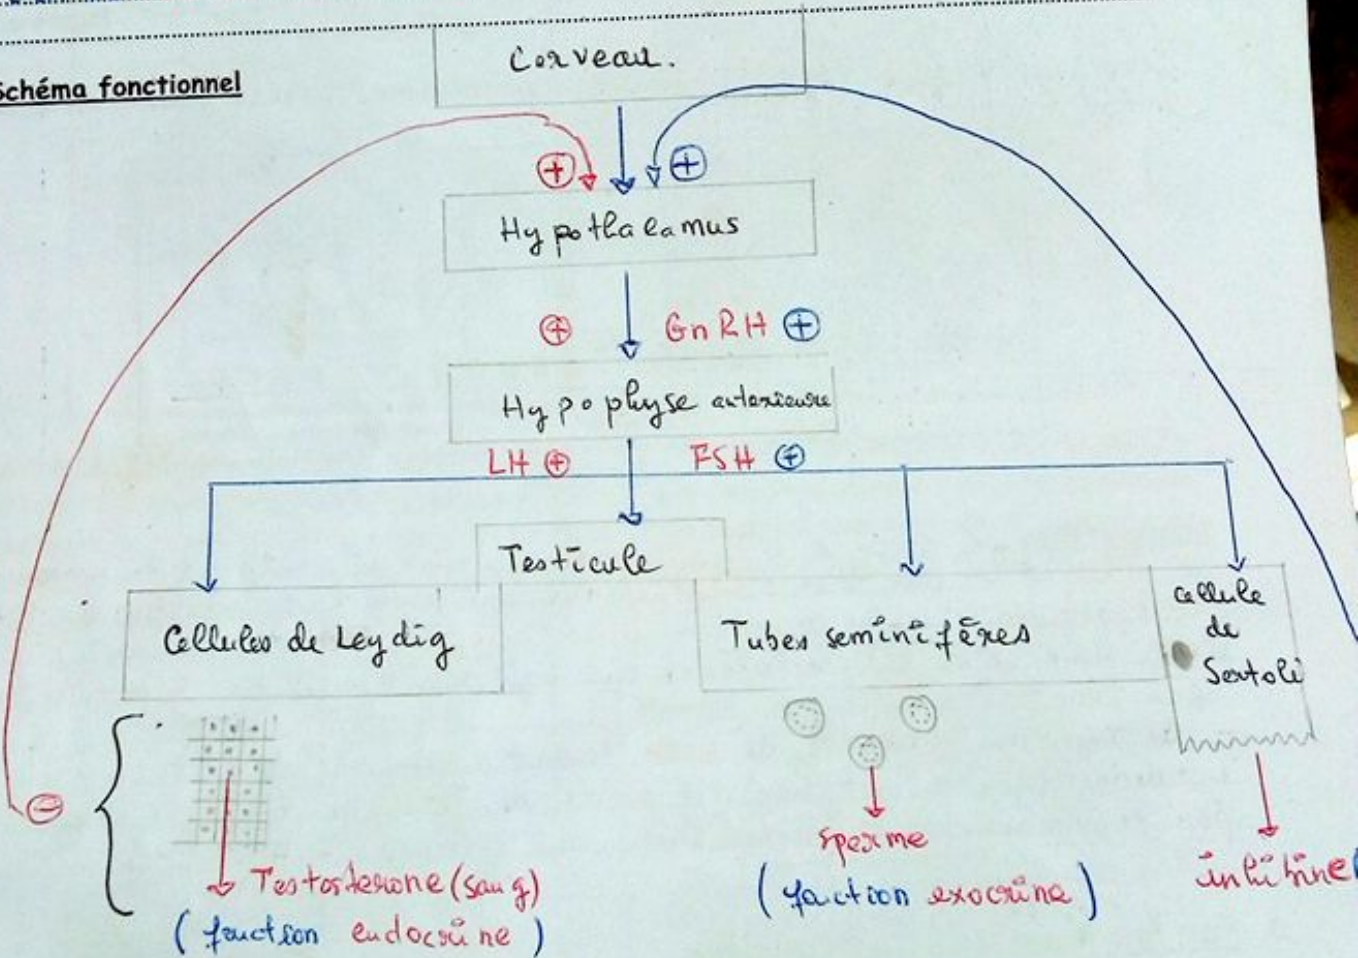 Schéma fonctionnel
Cerveau.
+ +
Hypothalamus
+ GnRH +
Hypophyse anterieure
LH + FSH +
Testicule
Cellules de Leydig
Tubes seminifères
cellule
de
Sertoli
-
Testosterone (sang)
(fonction endocrine)
sperme
(fonction exocrine)
inhibine